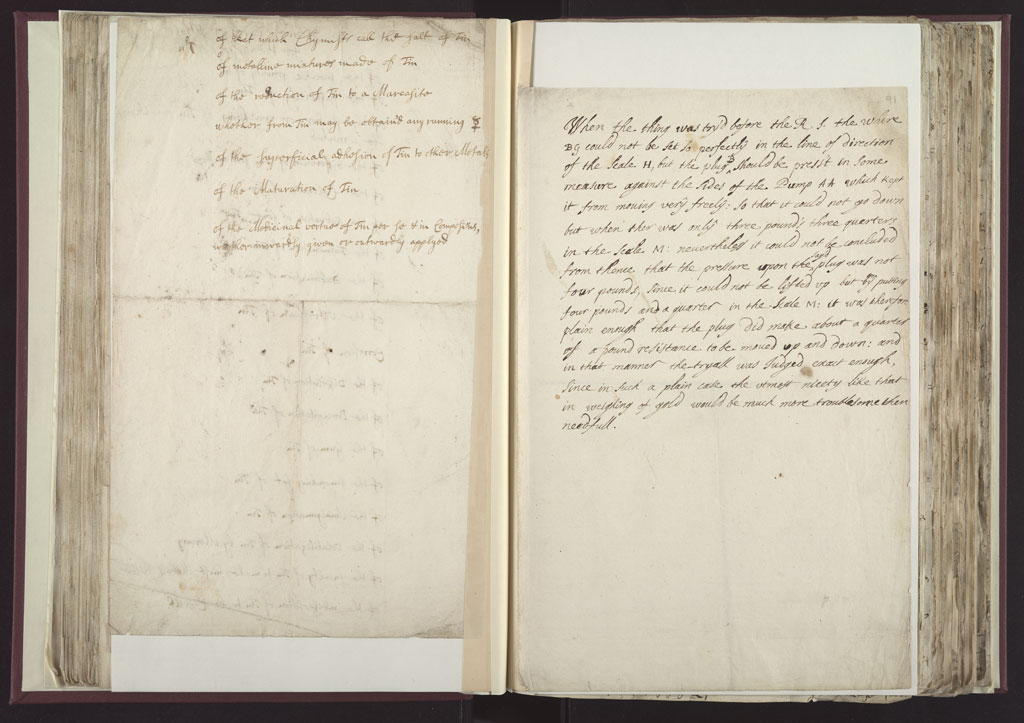 of that which Chymists call the salt of Tin
of metalline mixtures made of Tin
of the reduction of Tin to a Marcasite
whether from Tin may be obtaind any running ☿
of the superficial adhesion of Tin to other Metals
of the Maturation of Tin
of the Medicinal vertues of Tin per se & in Compositions,
whether inwardly given or outwardly applyed
When the thing was try'd before the R. S. the wire
BG could not be set so perfectly in the line of direction
of the Scale H, but the plug B should be press't in some
measure against the sides of the Pump AA which kept
it from moving very freely: so that it could not go down
but when ther was only three pounds three quarters
in the scale M: nevertheless it could not be concluded
from thence that the pressure upon the said plug was not
four pounds, since it could not be lifted up but by putting
four pounds and a quarter in the Scale M: it was therefore
plain enough that the plug did make about a quarter
of a pound resistance to be moved up and down: and
in that manner the tryall was Judged exact enough,
since in such a plain case the utmost nicety like that
in weighing of gold would be much more troublesome then
needfull.